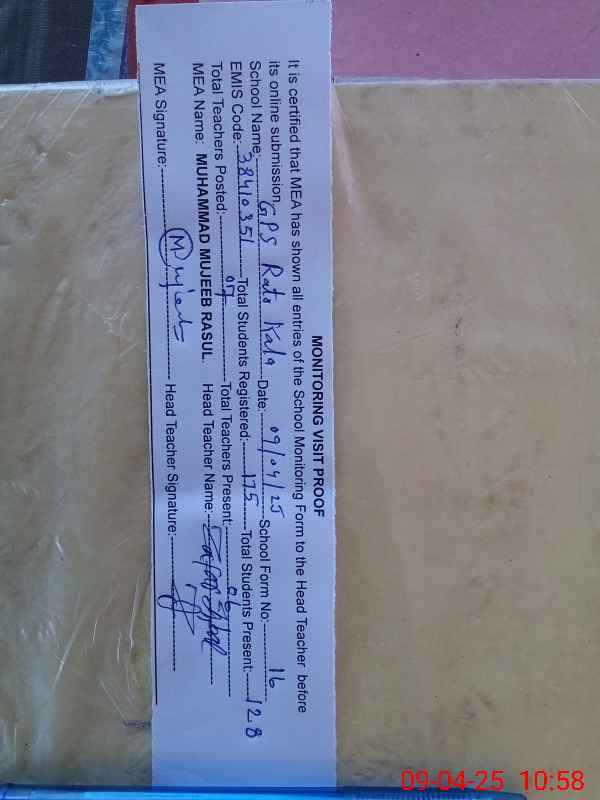 MONITORING VISIT PROOF
It is certified that MEA has shown all entries of the School Monitoring Form to the Head Teacher before
its online submission.
School Name: GPS Rato Kala Date: 09/04/25 School Form No: 16
EMIS Code: 38410351 Total Students Registered: 175 Total Students Present: 128
Total Teachers Posted: 07 Total Teachers Present: 06
MEA Name: MUHAMMAD MUJEEB RASUL. Head Teacher Name:
MEA Signature: Mujeeb Head Teacher Signature:
09-04-25 10:58